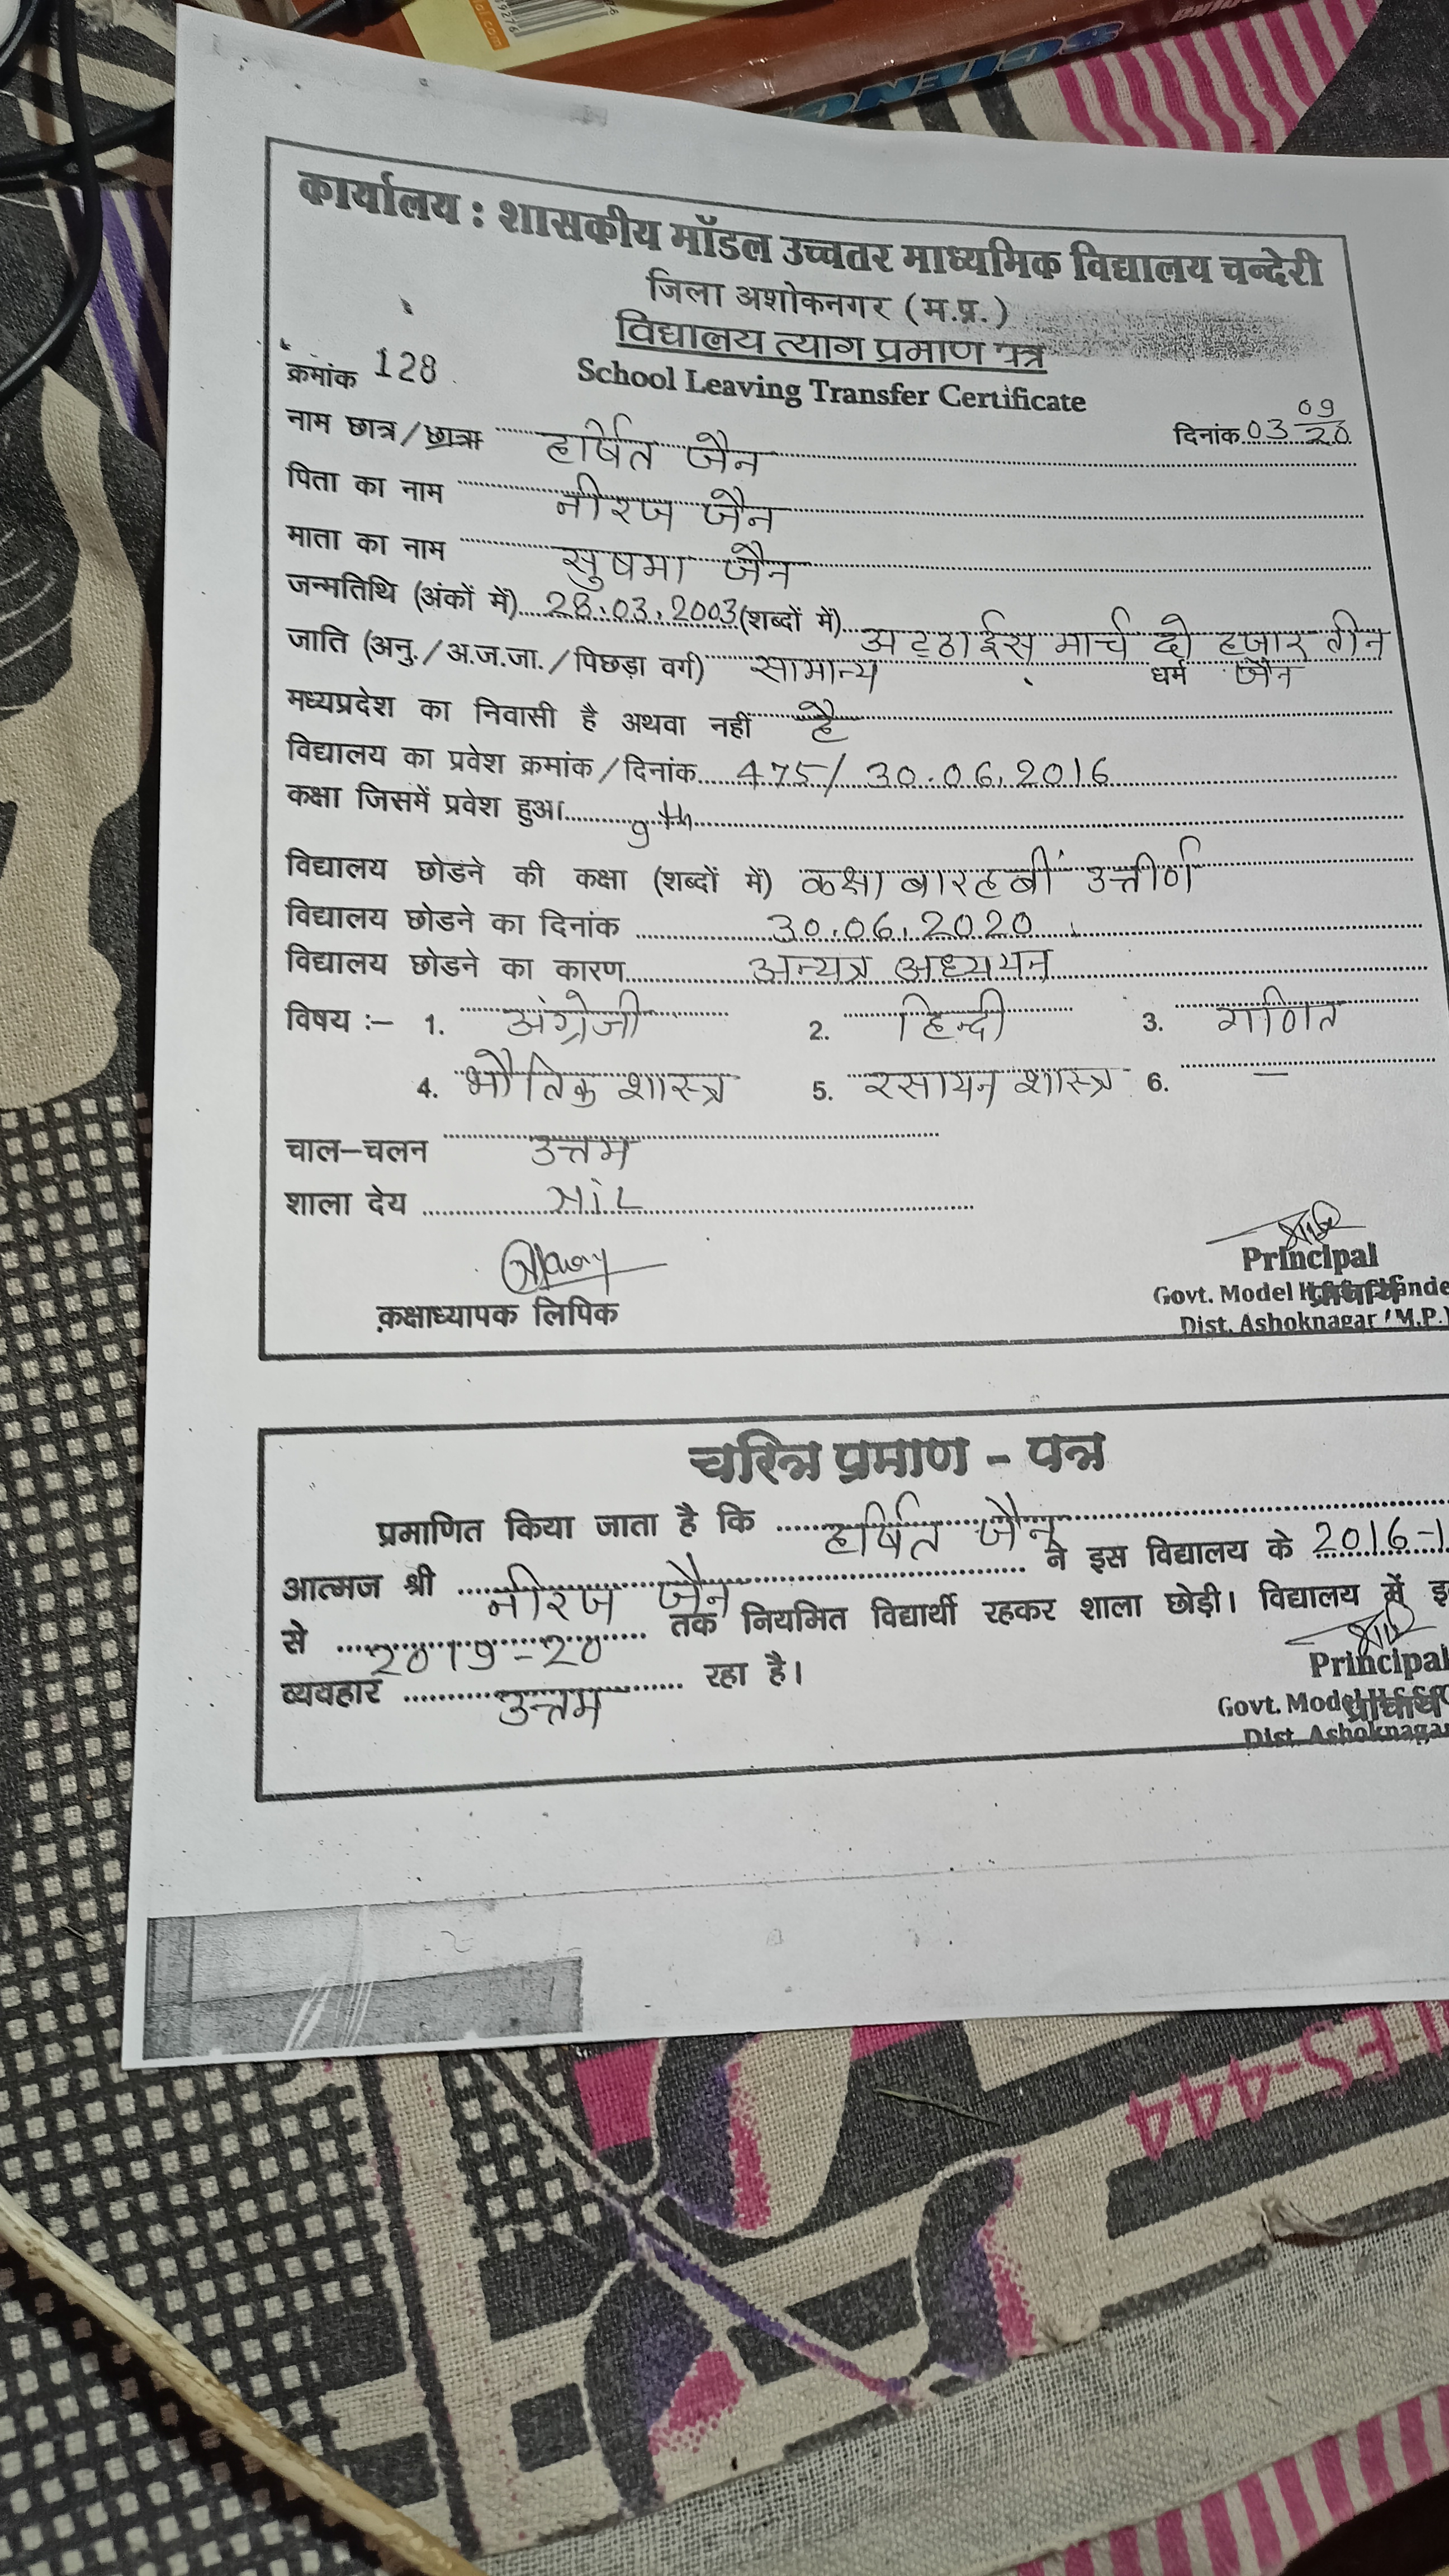 कार्यालय : शासकीय मॉडल उच्चतर माध्यमिक विद्यालय चन्देरी
जिला अशोकनगर (म.प्र.)
विद्यालय त्याग प्रमाण पत्र
School Leaving Transfer Certificate
क्रमांक 128
दिनांक 03 09 20
नाम छात्र/छात्रा हर्षित जैन
पिता का नाम नीरज जैन
माता का नाम सुषमा जैन
जन्मतिथि (अंकों में) 28.03.2003 (शब्दों में) अट्ठाईस मार्च दो हजार तीन
जाति (अनु./अ.ज.जा./पिछड़ा वर्ग) सामान्य धर्म जैन
मध्यप्रदेश का निवासी है अथवा नहीं है
विद्यालय का प्रवेश क्रमांक/दिनांक 475/ 30.06.2016
कक्षा जिसमें प्रवेश हुआ 9th
विद्यालय छोडने की कक्षा (शब्दों में) कक्षा बारहबीं उत्तीर्ण
विद्यालय छोडने का दिनांक 30.06.2020
विद्यालय छोडने का कारण अन्यत्र अध्ययन
विषय :– 1. अंग्रेजी 2. हिन्दी 3. गणित
4. भौतिक शास्त्र 5. रसायन शास्त्र 6. –
चाल–चलन उत्तम
शाला देय Nil
कक्षाध्यापक लिपिक
Principal
Govt. Model
Dist. Ashoknagar (M.P.)
चरित्र प्रमाण - पत्र
प्रमाणित किया जाता है कि हर्षित जैन
आत्मज श्री नीरज जैन ने इस विद्यालय के 2016-1
से 2019-20 तक नियमित विद्यार्थी रहकर शाला छोड़ी। विद्यालय में इ
व्यवहार उत्तम रहा है।
Principal
Govt. Model
Dist. Ashoknagar
FS-444